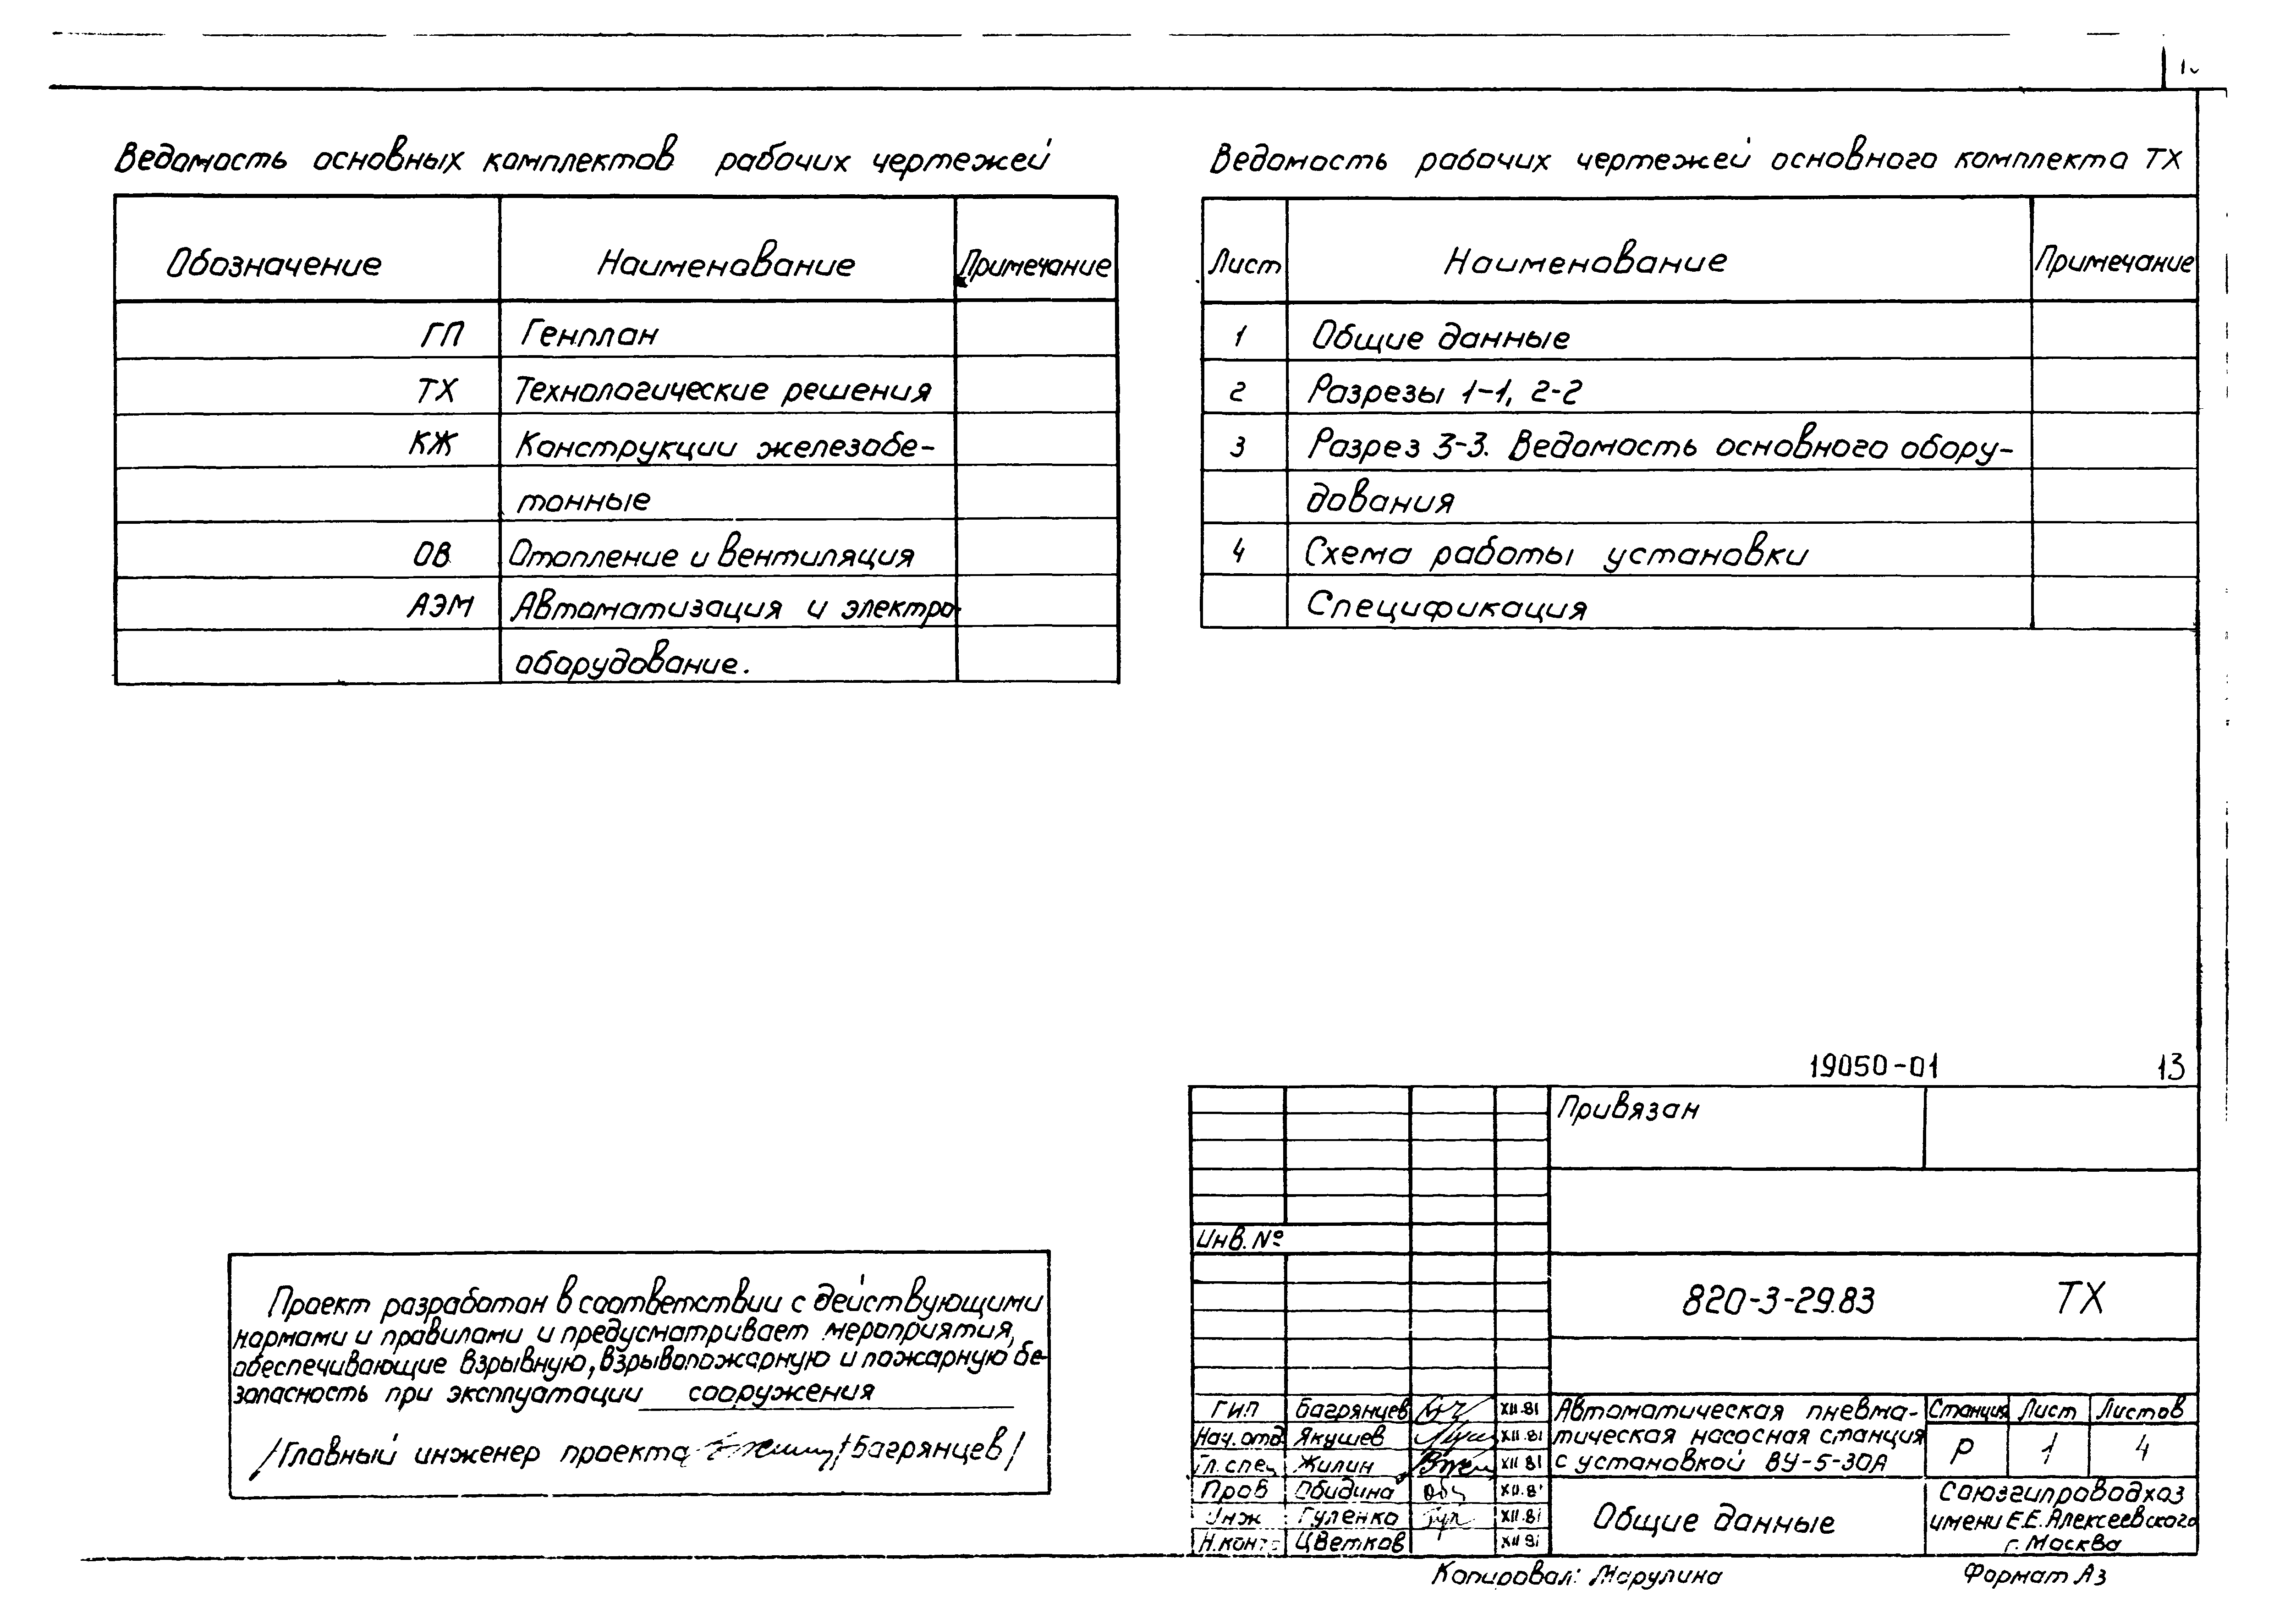 Ведомость основных комплектов рабочих чертежей
Обозначение Наименование Примечание
ГП Генплан
ТХ Технологические решения
КЖ Конструкции железобе-
тонные
ОВ Отопление и вентиляция
АЭМ Автоматизация и электро-
оборудование.
Ведомость рабочих чертежей основного комплекта ТХ
Лист Наименование Примечание
1 Общие данные
2 Разрезы 1-1, 2-2
3 Разрез 3-3. Ведомость основного обору-
дования
4 Схема работы установки
Спецификация
Проект разработан в соответствии с действующими
нормами и правилами и предусматривает мероприятия,
обеспечивающие взрывную, взрывопожарную и пожарную бе-
зопасность при эксплуатации сооружения
/Главный инженер проекта /Багрянцев/
19050-01 13
Привязан
Инв. №
820-3-29.83 ТХ
ГИП Багрянцев XII.81
Нач. отд Якушев XII.81
Гл. спец Жилин XII 81
Пров Обидина XII.81
Инж Гуленко XII.81
Н.контр Цветков XII 81
Автоматическая пневма-
тическая насосная станция
с установкой ВУ-5-30А
Стандия Лист Листов
Р 1 4
Общие данные
Союзгипроводхоз
имени Е.Е. Алексеевского
г. Москва
Копировал: Марулина Формат А3